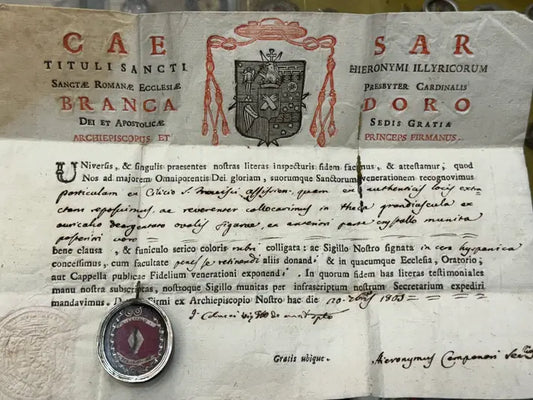 CAE SAR
TITULI SANCTI HIERONYMI ILLYRICORUM
SANCTÆ ROMANÆ ECCLESIÆ PRESBYTER CARDINALIS
BRANCA DORO
DEI ET APOSTOLICÆ SEDIS GRATIA
ARCHIEPISCOPUS ET PRINCEPS FIRMANUS.
UNiversis, & singulis præsentes nostras literas inspecturis fidem facimus, & attestamur, quod
Nos ad majorem Omnipotentis Dei gloriam, suorumque Sanctorum venerationem recognovimus
particulam ex Cilicio S. Francisci Assisien. quam ex authenticis locis extra
ctam reposuimus, ac reverenter collocavimus in theca grandiuscula ex
auricalco deargentato ovalis figuræ, ex anteriori parte crystallo munita
posteriori
bene clausa, & funiculo serico coloris rubri colligata: ac Sigillo Nostro signata in cera hispanica
concessimus, cum facultate penes se retinendi aliis donandi & in quacumque Ecclesia, Oratorio,
aut Cappella publicæ Fidelium venerationi exponendi. In quorum fidem has literas testimoniales
manu nostra subscriptas, nostroque Sigillo munitas per infrascriptum nostrum Secretarium expediri
mandavimus. Firmi ex Archiepiscopio Nostro hac die 1803
Gratis ubique. Hieronymus